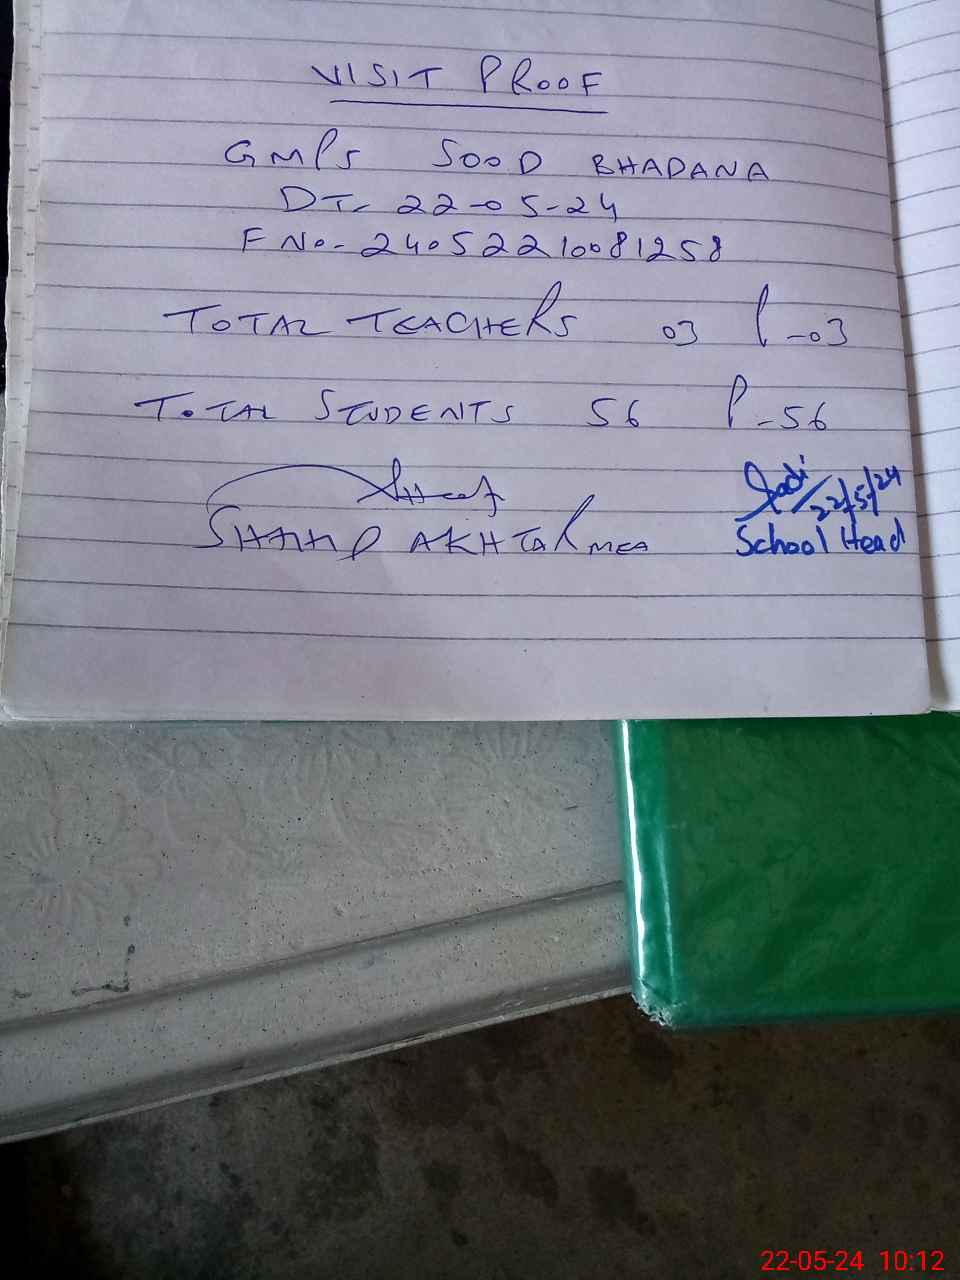 VISIT PROOF
GMPS SOOD BHADANA
DT- 22-05-24
F No- 24052210081258
TOTAL TEACHERS 03 P-03
TOTAL STUDENTS 56 P-56
22/5/24
AKHTAR MEA School Head
22-05-24 10:12